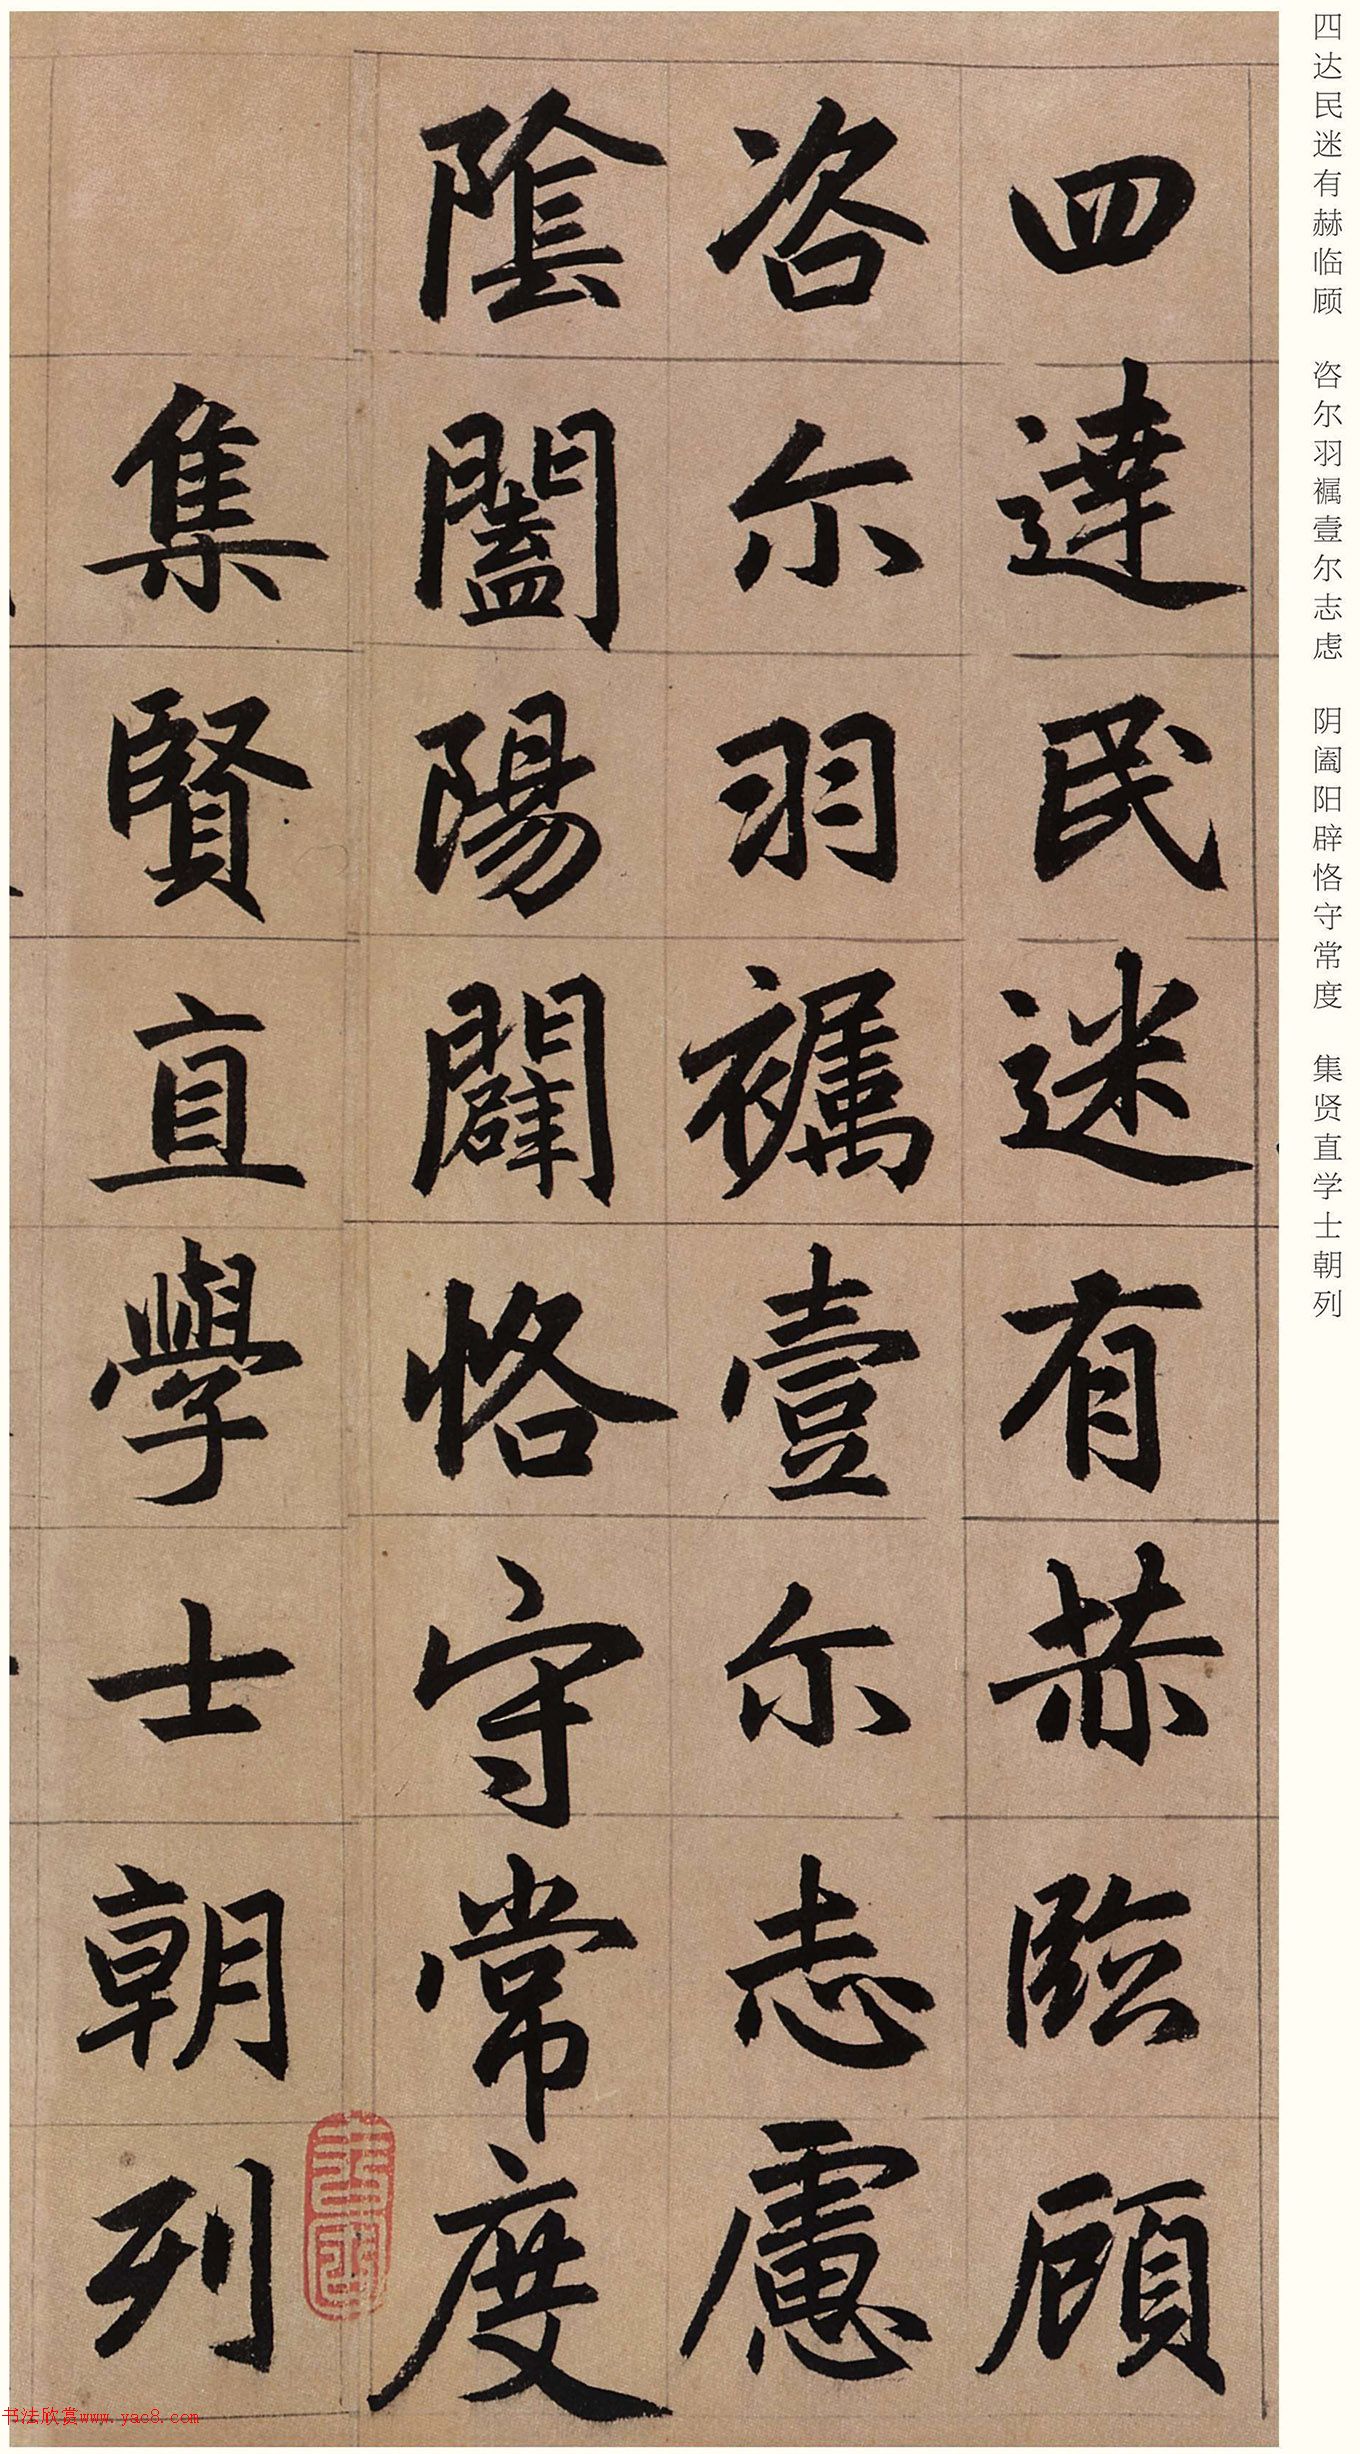 四达民迷有赫临顾 咨尔羽褵壹尔志虑 阴阖阳辟恪守常度 集贤直学士朝列
四達民迷有赫臨顧
咨尓羽褵壹尓志慮
陰闔陽闢恪守常度
集賢直學士朝列
书法欣赏www.yac8.com